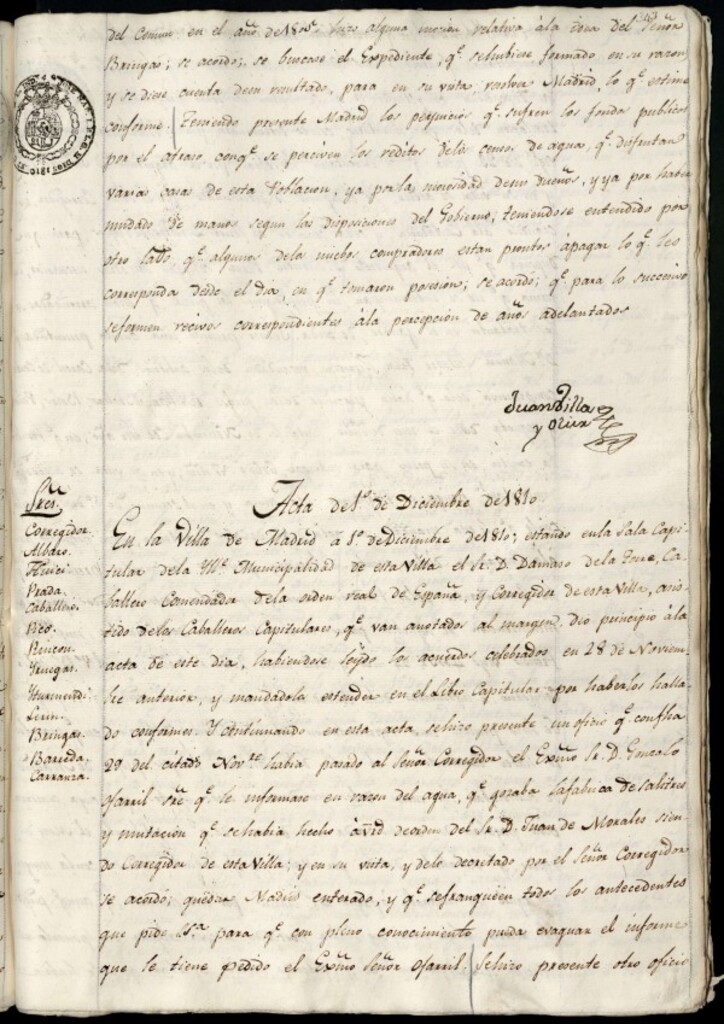 del Comun en el año de 180 hizo alguna mocion relativa âla idea del Señor
Bringas; se acordo; se buscase el Expediente, q.e sehubiese formado en su razon
y se diese cuenta desu resultado, para en su vista, resolver Madrid, lo q.e estime
conforme. Teniendo presente Madrid los perjuicios q.e sufren los fondos publicos
por el atraso, conq.e se perciven los reditos delos censos de agua, q.e disfrutan
varias casas de esta Poblacion, ya porla morosidad desus dueños, y ya por haber
mudado de manos segun las disposiciones del Gobierno; teniendose entendido por
otro lado q.e algunos delos nuebos compradores estan prontos âpagar lo q.e les
corresponda desde el dia, en q.e tomaron posesion; se acordó; q.e para lo successivo
seformen recivos correspondientes âla percepcion de años adelantados
Juan Villa
y Olier
Acta de 1.º de Diciembre de 1810.
Sres.
Corregidor.
Albaro.
Prada.
Caballero.
Rico.
Rincon.
Yruegas.
Yturmendi.
Lerin.
Bringas.
Barreda.
Carranza.
En la Villa de Madrid â 1.º de Diciembre de 1810; estando enla Sala Capi-
tular dela M.e Municipalidad de estaVilla el Sr. D. Damaso dela Torre, Ca-
ballero Comendador dela orden real de España, y Corregidor de estaVilla, asis-
tido delos Caballeros Capitulares, q.e van anotados al margen, dio principio âla
acta de este dia, habiendose leydo los acuerdos celebrados en 28 de Noviem-
bre anterior, y mandadola estender en el Libro Capitular por haberlos halla-
do conformes. Y continuando en esta acta, sehizo presente un oficio q.e con fha
29 del citado Nov.re habia pasado al Señor Corregidor el Exmo Sr. D. Gonzalo
Ofarril sre q.e le informase en razon del agua, q.e gozaba lafabrica de Salitres
y mutacion q.e sehabia hecho deorden del Sr. D. Juan de Morales sien-
do Corregidor de estaVilla; y en su vista, y delo decretado por el Señor Corregidor
se acordó; quedar Madrid enterado, y q.e sefranqueen todos los antecedentes
que pide para q.e con pleno conocimiento pueda evaquar el informe
que le tiene pedido el Exmo Señor Ofarril. Sehizo presente otro oficio